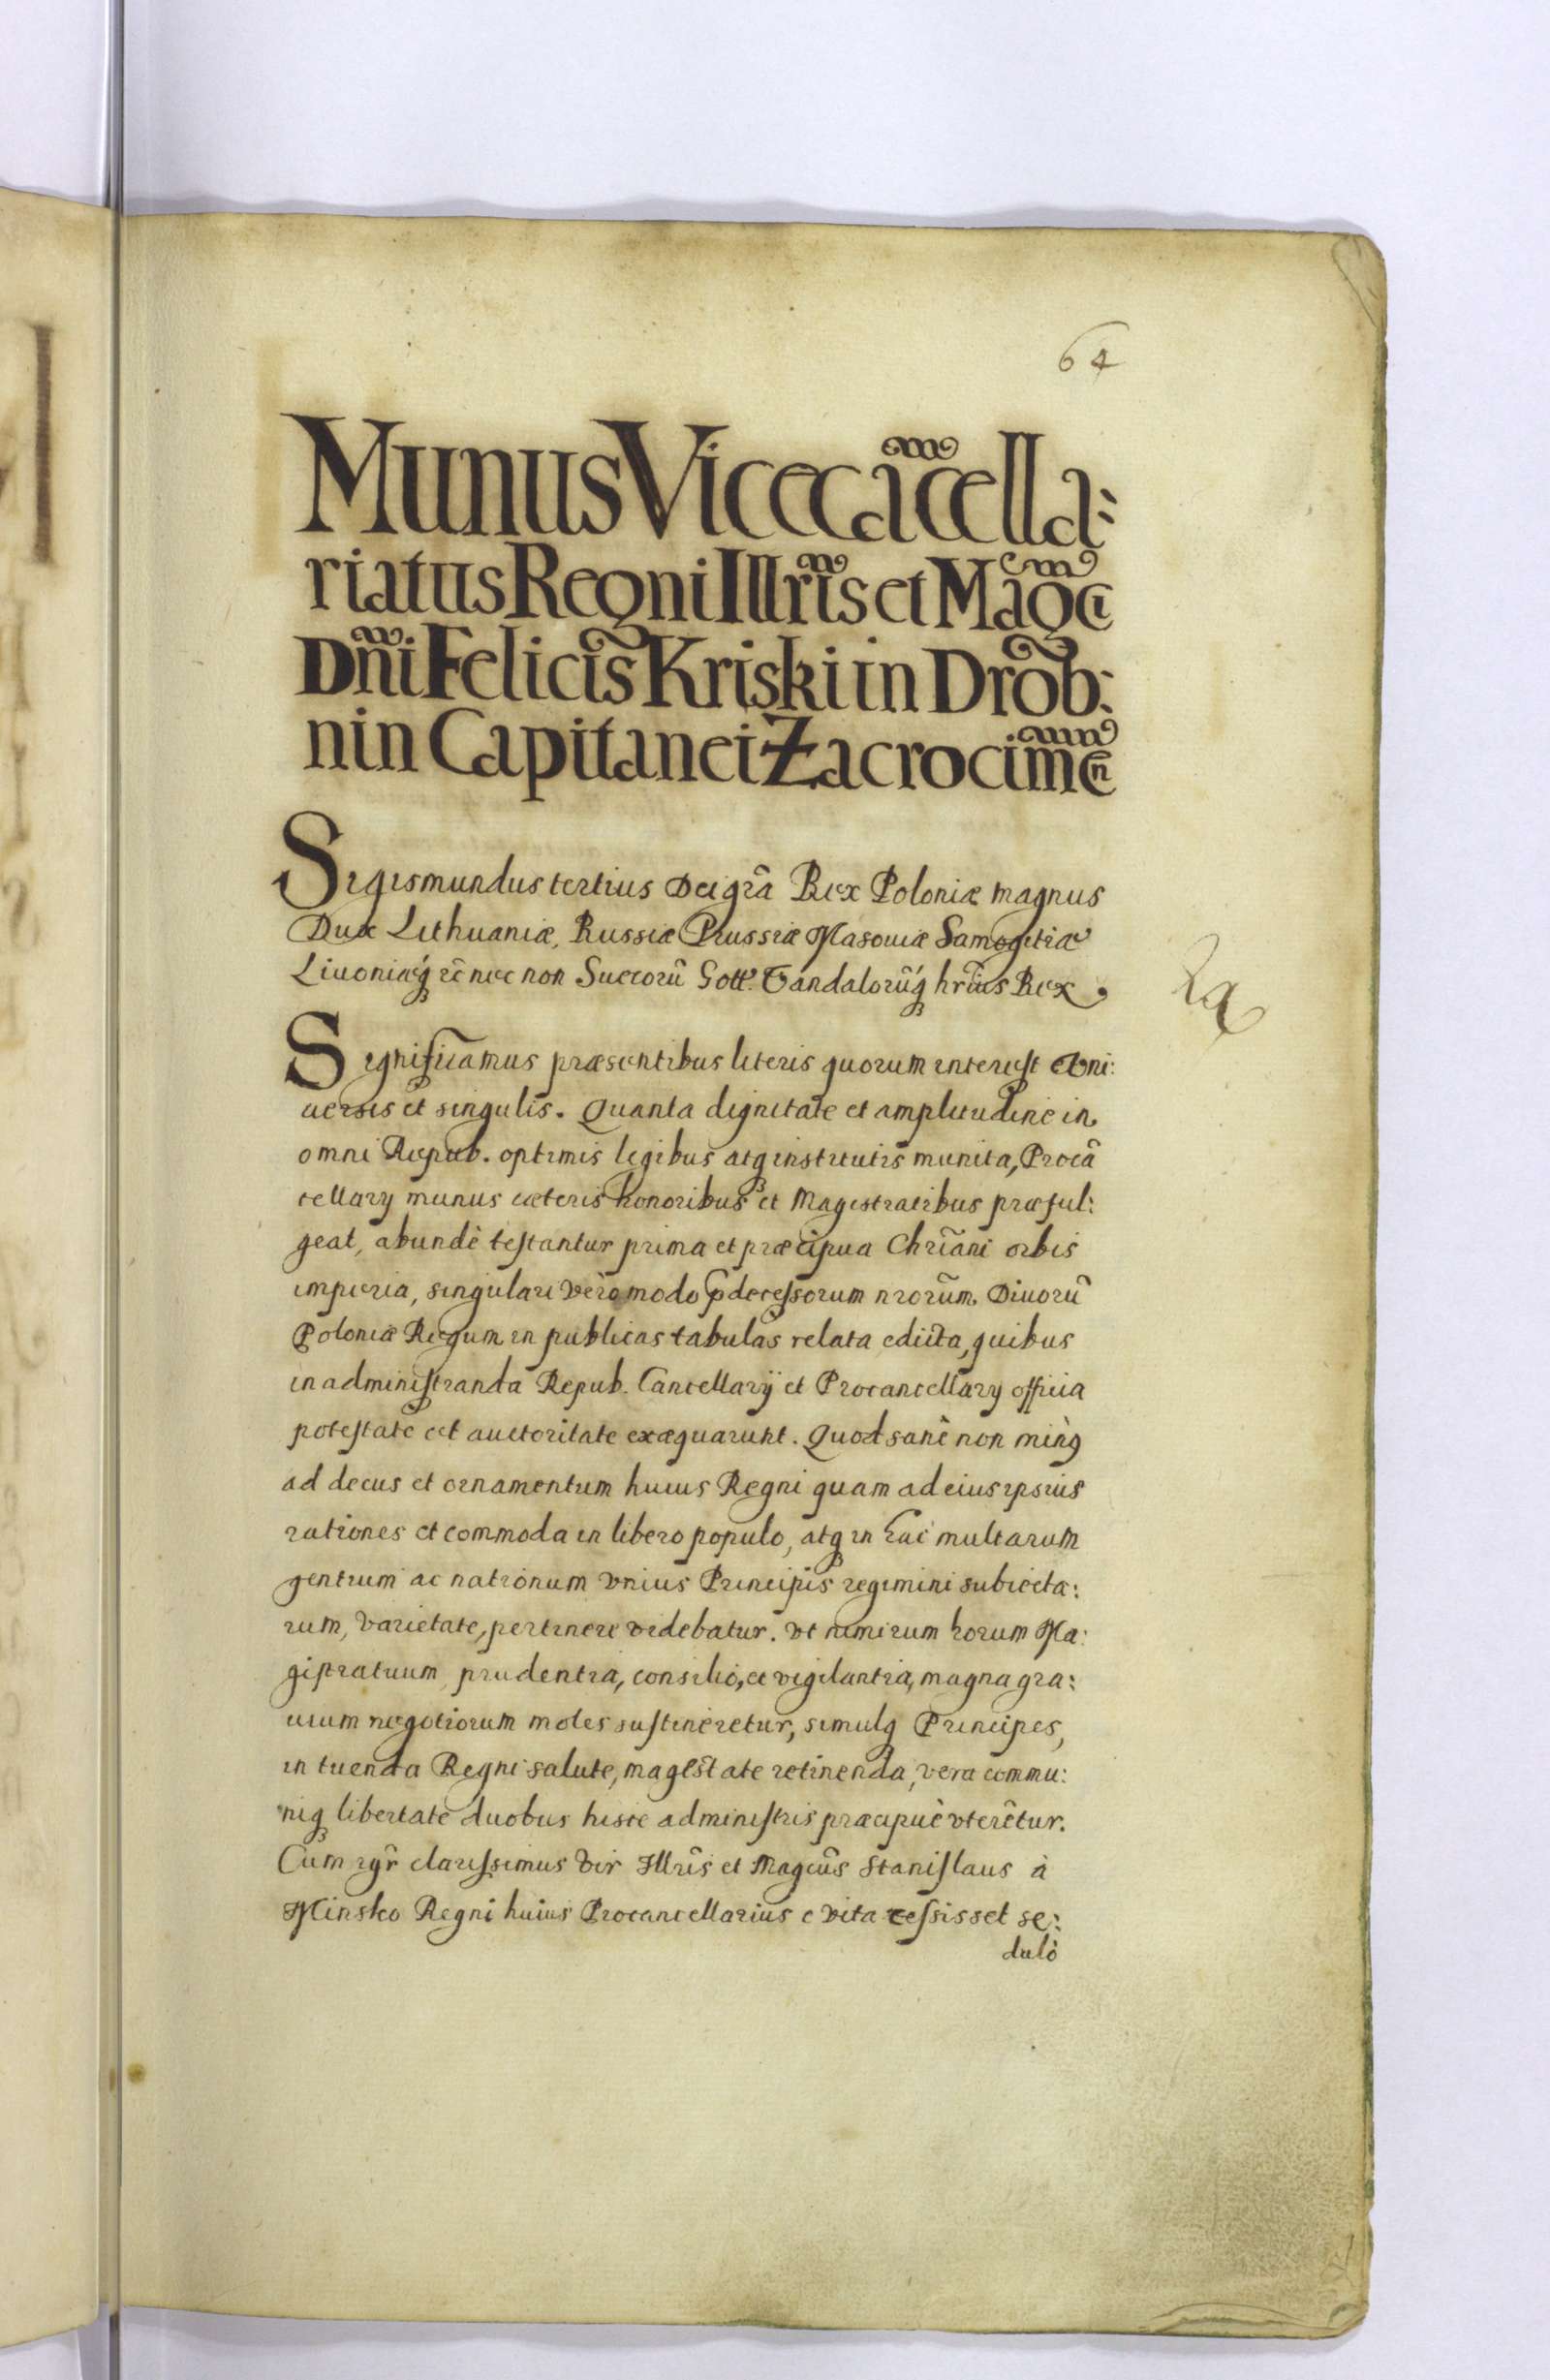 64
Munus Vicecãcella:
riatus Regni Illrĩs et Mãgci
Dñi Felicis Kriski in Drob:
nin Capitanei Zacrocimẽn
Sigismundus tertius Dei grã Rex Poloniæ magnus
Dux Lithuaniæ, Russiæ Prussiæ Masouiæ Samogitiæ
Liuoniæq́ꝫ rẽ nec non Suecorũ Gott. Vandalorũq́ꝫ hrĩus Rex
Significamus præsentibus literis quorum interest Vni:
uersis et singulis. Quanta dignitate et amplitudine in
omni Repub. optimis legibus atqꝫ institutis munita, Procã
cellarÿ munus cæteris honoribus et Magistratibus præful:
geat, abundè testantur prima et præcipua Chrĩani orbis
imperia, singulari verò modo p̃decessorum nrorũm Diuorũ
Poloniæ Regum in publicas tabulas relata edicta, quibus
in administranda Repub. Cancellarÿ et Procancellarÿ officia
potestate et auctoritate exæquarunt. Quod sanè non minꝰ
ad decus et ornamentum huius Regni quam ad eius ipsius
rationes et commoda in libero populo, atqꝫ in hac multarum
gentium ac nationum vnius Principis regimini subiecta:
rum, varietate, pertinere videbatur. vt nimirum horum Ma:
gistratuum prudentia, consilio, et vigilantia, magna gra:
uium negotiorum moles sustineretur, simulqꝫ Principes,
in tuenda Regni salute, magestate retinenda, vera commu:
niqꝫ libertate duobus hisce administris præcipuè vterẽtur.
Cum igr̃ clarissimus Vir Illrĩs et Magcũs Stanislaus à
Minsko Regni huius Procancellarius e vita cessisset se:
dulò